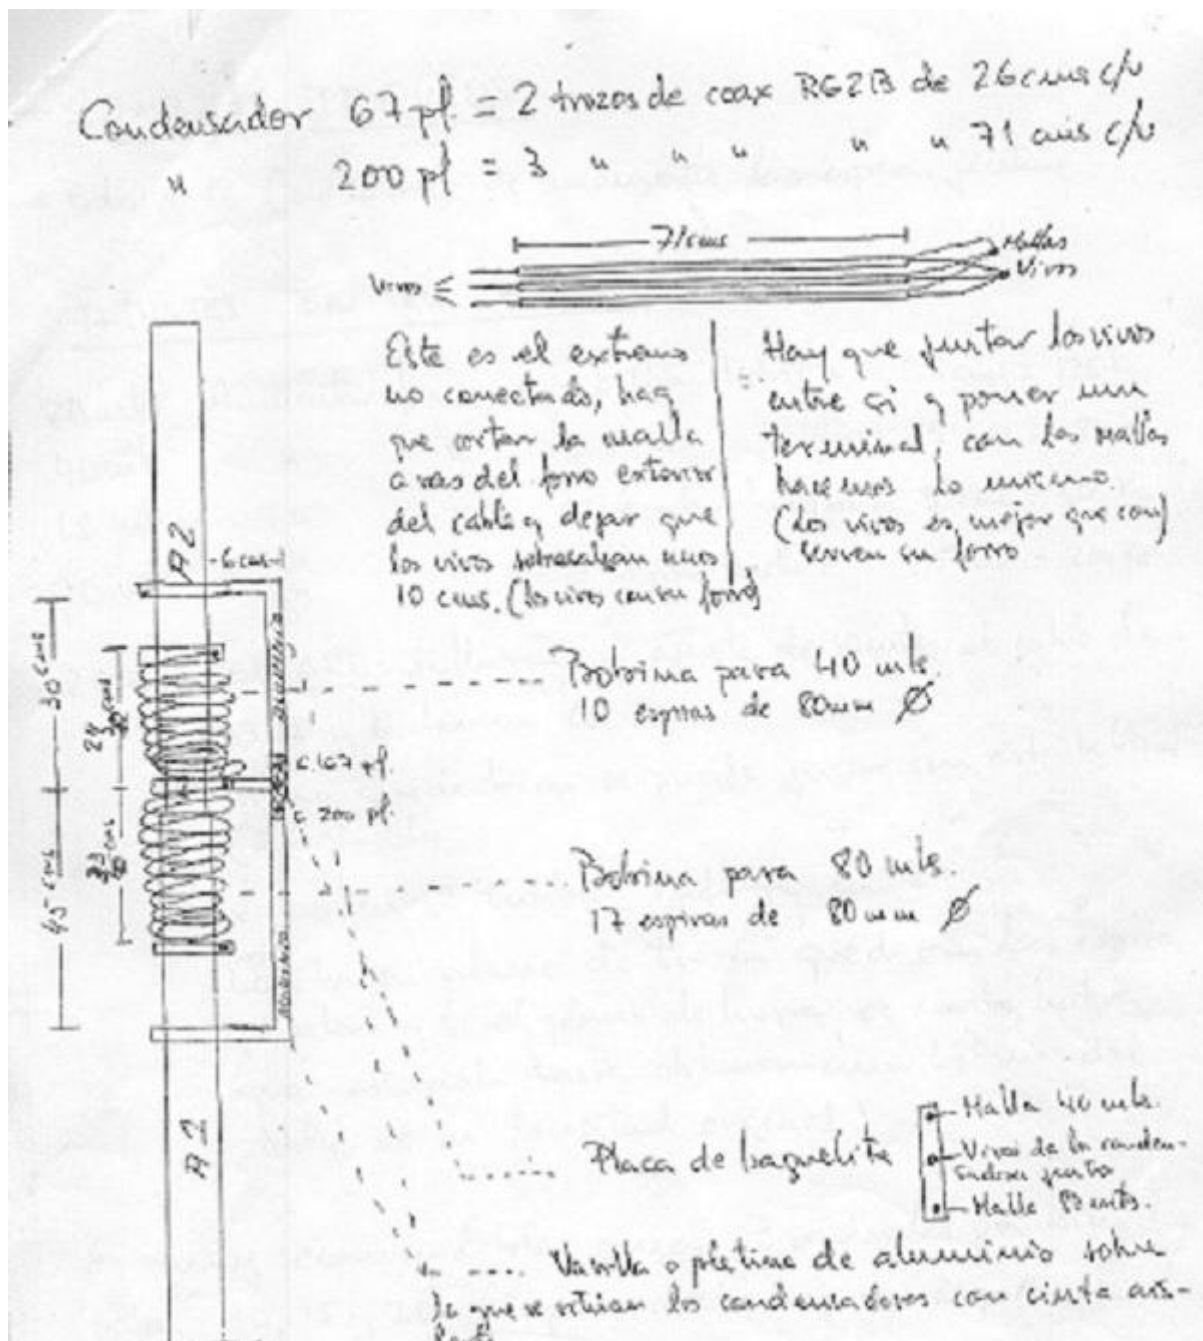 Condensador 67 pf. = 2 trozos de coax RG2B de 26 cms c/u
" 200 pf = 3 " " " " " 71 cms c/u
71 cms
Mallas
Vivos
Vivos
Este es el extremo
no conectado, hay
que cortar la malla
a ras del forro exterior
del cable y dejar que
los vivos sobresalgan unos
10 cms. (los vivos con su forro)
Hay que juntar los vivos
entre si y poner un
terminal, con las mallas
hacemos lo mismo.
(Los vivos es mejor que con)
serven su forro
A2
6 cms
30 cms
45 cms
Bobina para 40 mts.
10 espiras de 80 mm Ø
C. 67 pf.
C. 200 pf.
Bobina para 80 mts.
17 espiras de 80 mm Ø
Placa de baquelita
Malla 40 mts.
Vivos de los conden-
sadores juntos
Malla 80 mts.
Varilla o pletina de aluminio sobre
la que se situan los condensadores con cinta ais-
lante